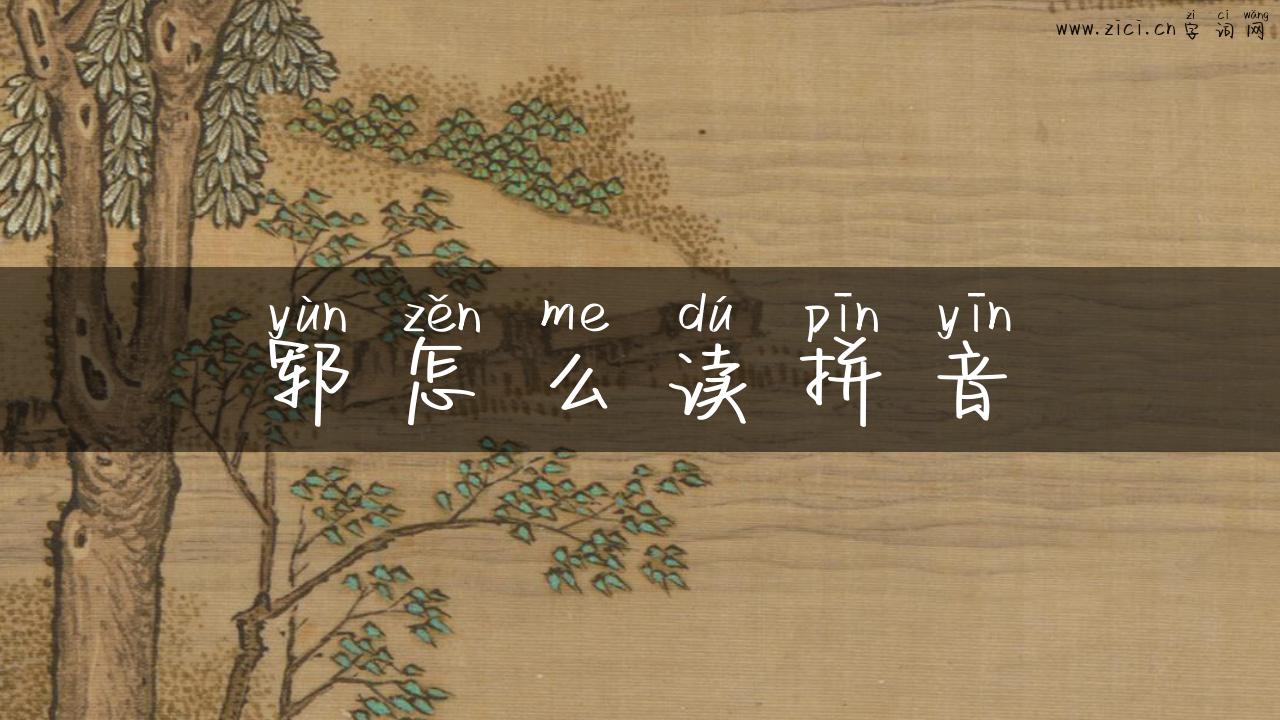 zì cí wǎng
www.zici.cn 字词网
yùn zěn me dú pīn yīn
郓怎么读拼音